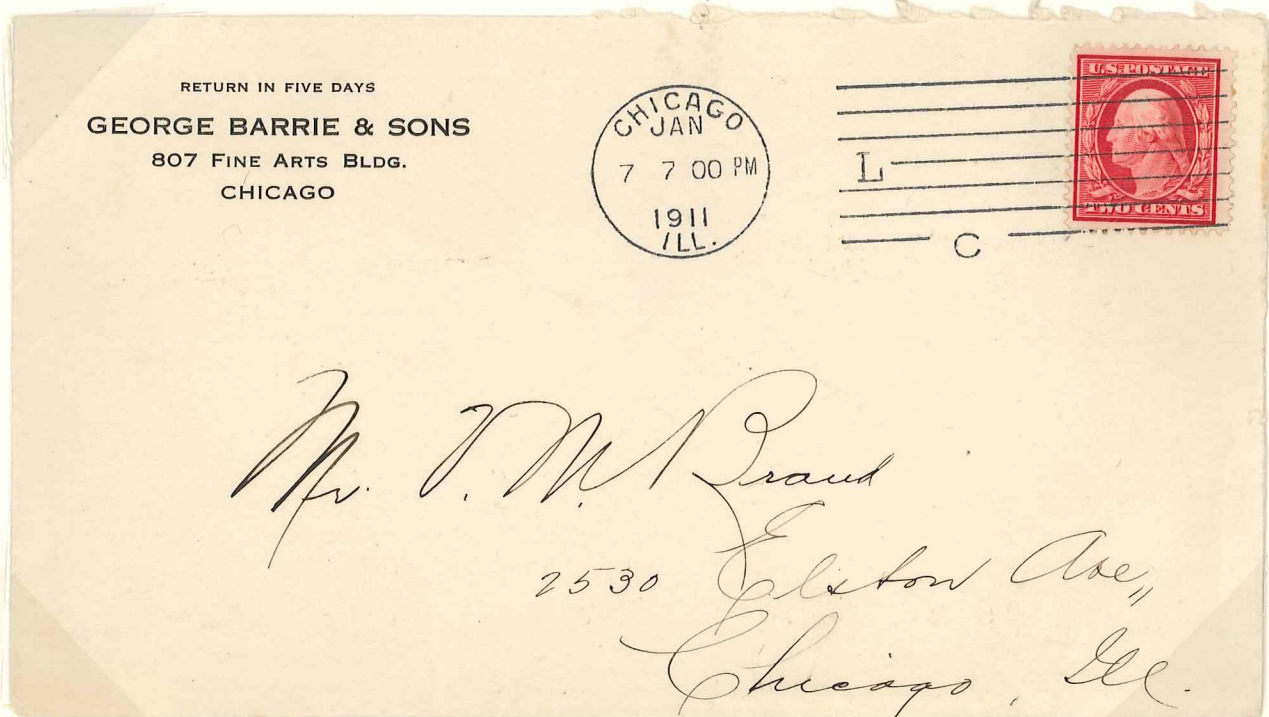 RETURN IN FIVE DAYS
GEORGE BARRIE & SONS
807 FINE ARTS BLDG.
CHICAGO
CHICAGO
JAN
7 7 00 PM
1911
ILL.
L
C
U.S. POSTAGE
TWO CENTS
Mr. V. M. Brand
2530 Elston Ave,,
Chicago, Ill.